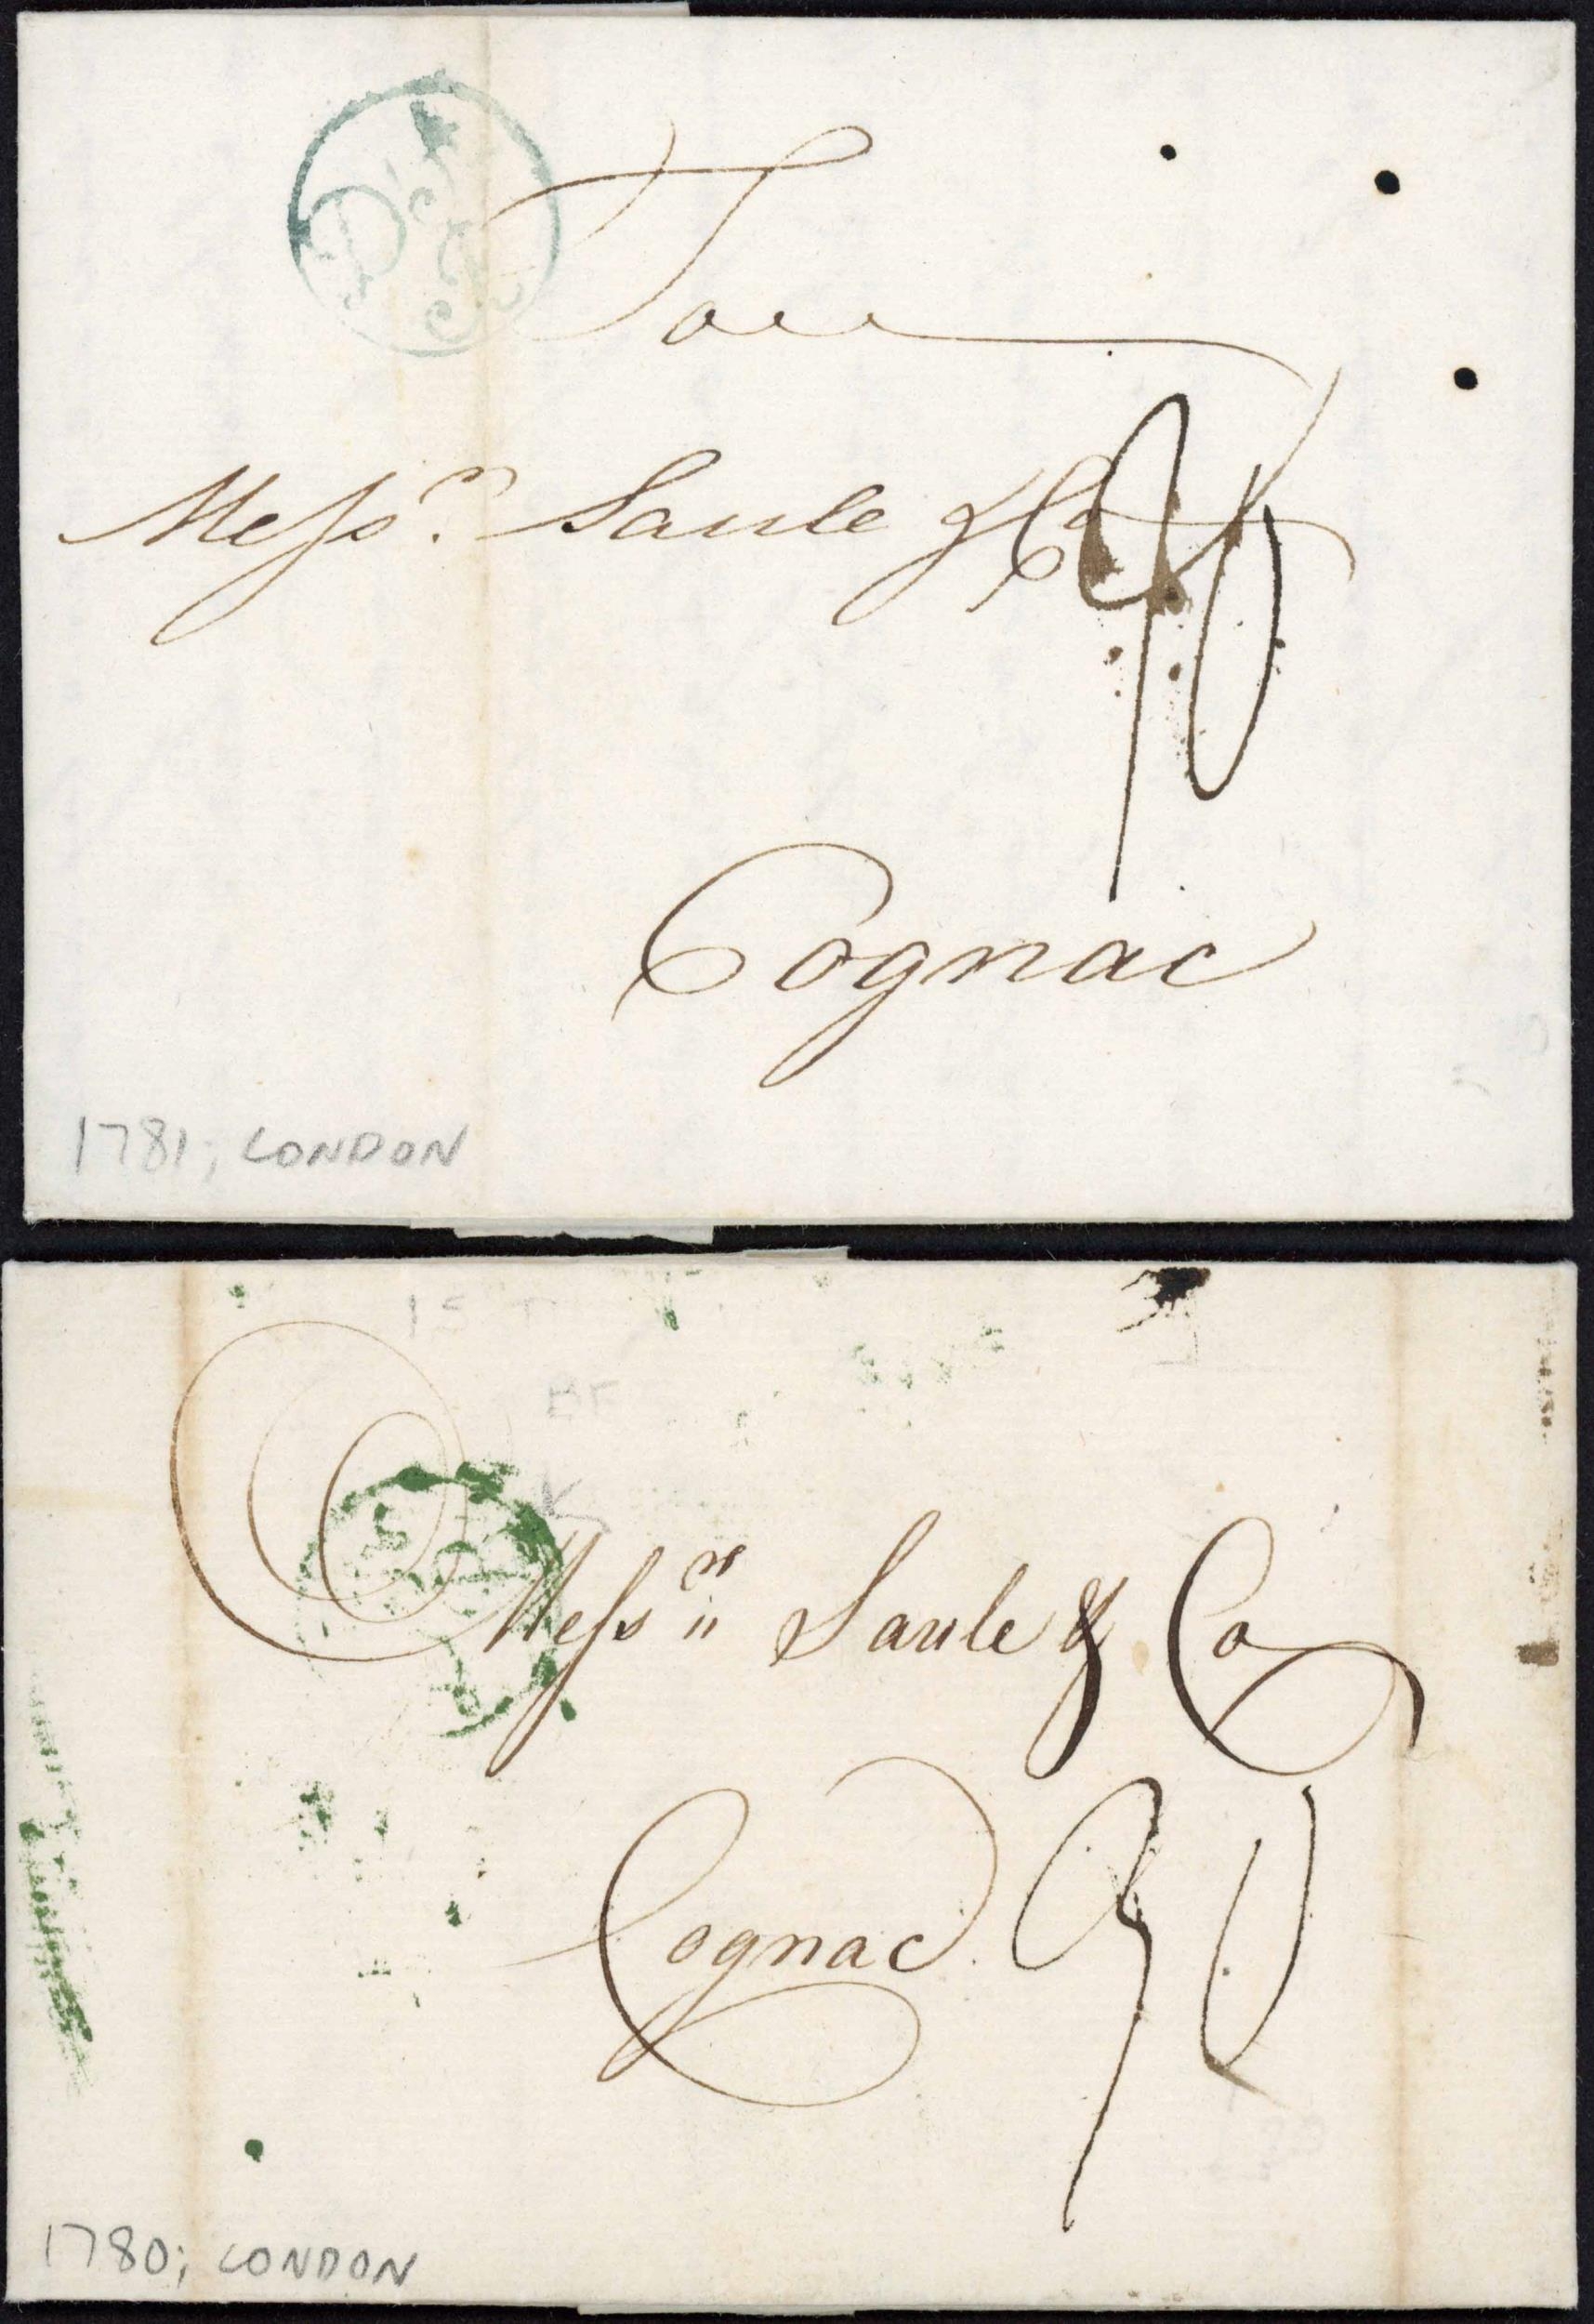 To
Messrs. Saule & Co
90
Cognac
1781; LONDON
Messrs Saule & Co
Cognac. 90
1780; LONDON